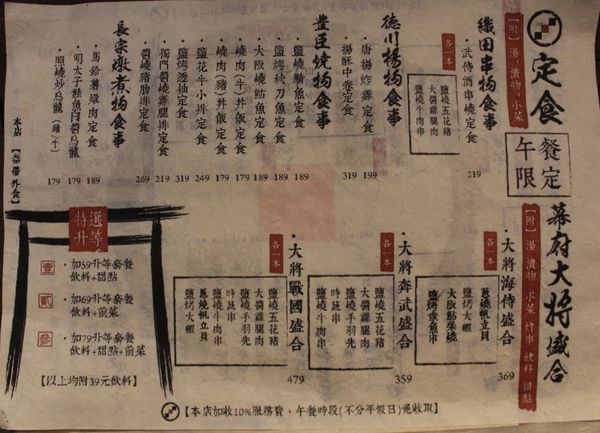 定食
【附】湯、漬物、小菜
午餐限定
織田串物食事
・武侍酒串燒定食 219
各一本
鹽燒五花豬
大醬雞腿肉
鹽燒牛肉串
德川揚物食事
・唐揚炸雞定食 199
・揚酥中卷定食 319
豊臣燒物食事
・鹽燒鯖魚定食 189
・鹽烤秋刀魚定食 189
・大阪燒魚定食 189
・燒肉(牛)丼飯定食 179
・燒肉(豬)丼飯定食 179
・鹽花牛小排定食 249
・鹽烤透抽定食 319
・獨門醬燒雞腿排定食 219
・醬燒豬肋排定食 269
長宗燉煮物食事
・馬鈴薯燉肉定食 189
・明太子鮭魚白醬烏龍 179
・照燒炒烏龍(豬/牛) 179
本店【禁帶外食】
幕府大將盛合
【附】湯 漬物 小菜 炸串 飲料 甜點
・大將海侍盛合 369
各一本
蔥燒帆立貝
大阪魷柴燒
鹽烤章魚串
・大將奔武盛合 359
各一本
鹽燒五花豬
大醬雞腿肉
鹽燒手羽先
時蔬串
鹽燒牛肉串
・大將戰國盛合 479
各一本
鹽燒五花豬
大醬雞腿肉
鹽燒手羽先
時蔬串
鹽燒牛肉串
蔥燒帆立貝
鹽烤大蝦
特選升等
壹
・加59升等套餐
飲料+甜點
貳
・加69升等套餐
飲料+前菜
參
・加79升等套餐
飲料+甜點+前菜
【以上均附39元飲料】
【本店加收10%服務費，午餐時段(不分平假日)免收取】